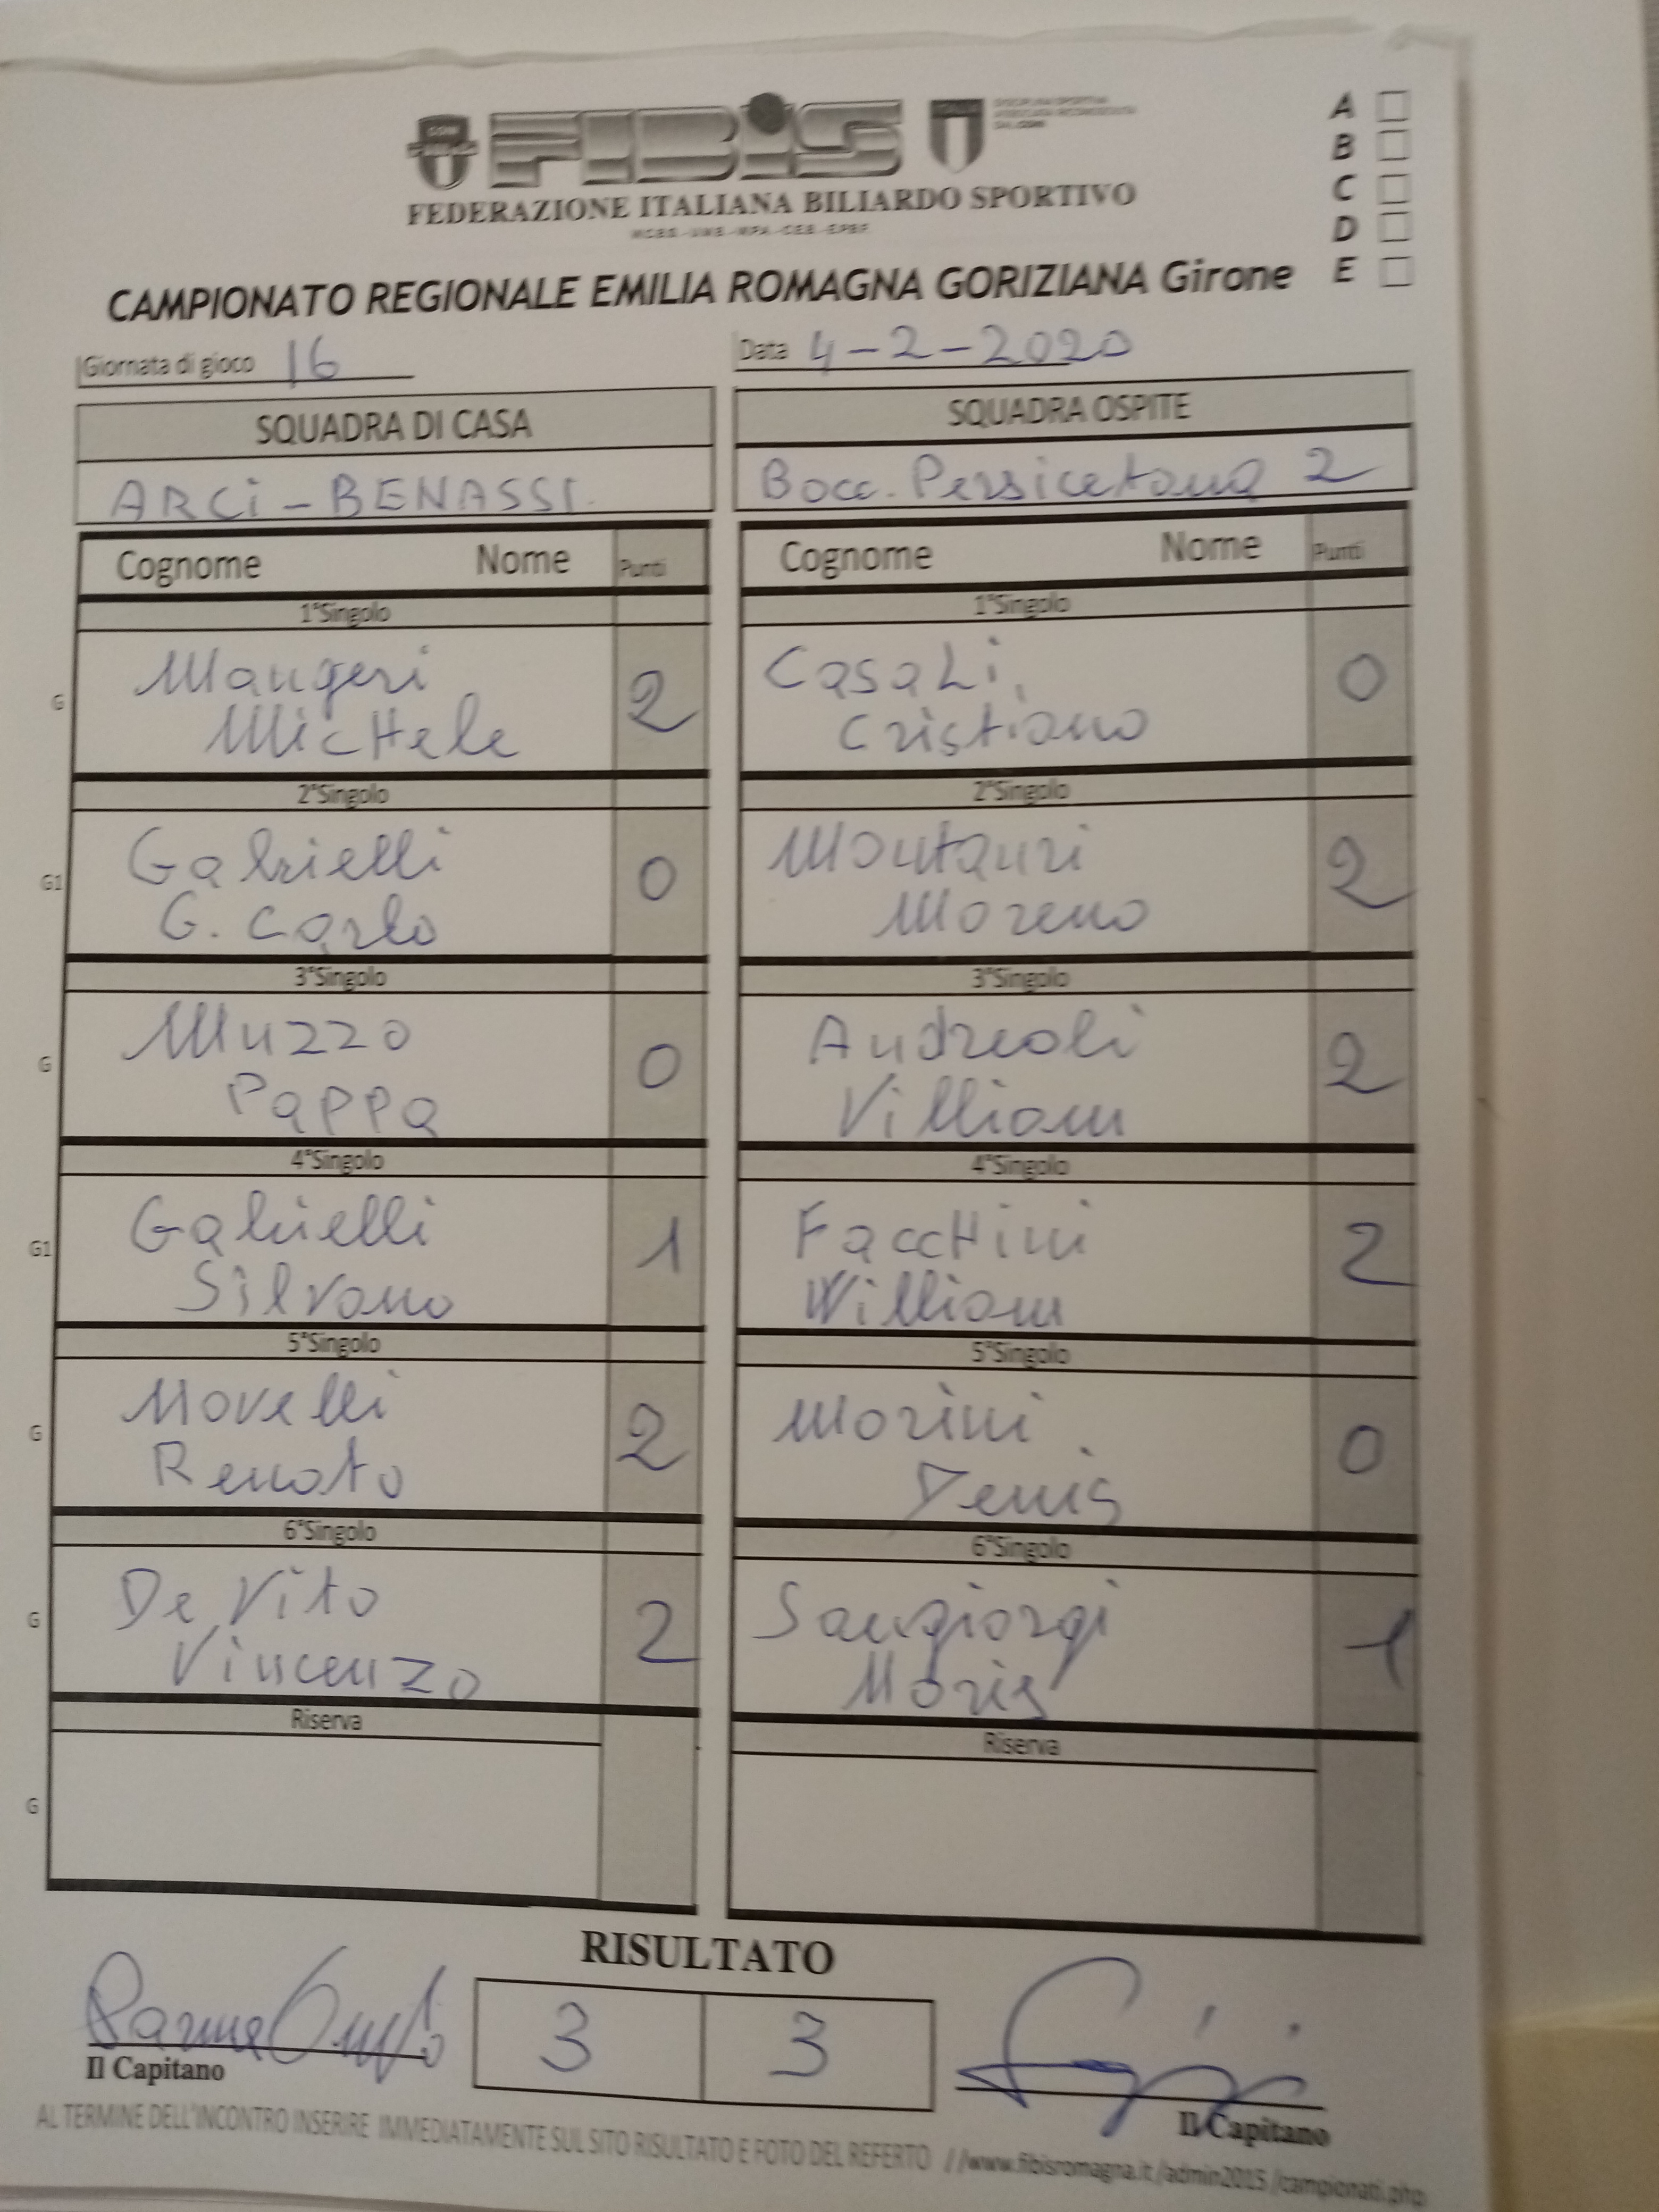 FIBIS
FEDERAZIONE ITALIANA BILIARDO SPORTIVO
A
B
C
D
E
CAMPIONATO REGIONALE EMILIA ROMAGNA GORIZIANA Girone
Giornata di gioco 16
Data 4-2-2020
SQUADRA DI CASA
SQUADRA OSPITE
ARCi-BENASSI.
Bocc. Persicetana 2
Cognome Nome Punti
Cognome Nome Punti
1°Singolo
1°Singolo
G
Maugeri
Michele
2
Casali
Cristiano
0
2°Singolo
2°Singolo
G1
Gabrielli
G. Carlo
0
Montauri
Moreno
2
3°Singolo
3°Singolo
G
Muzzo
Pappa
0
Andreoli
Villiam
2
4°Singolo
4°Singolo
G1
Gabrielli
Silvano
1
Facchini
William
2
5°Singolo
5°Singolo
G
Renato
2
Morini
Denis
0
6°Singolo
6°Singolo
G
De Vito
Vincenzo
2
Sangiorgi
Moris
1
Riserva
Riserva
G
RISULTATO
3 3
Il Capitano
Il Capitano
AL TERMINE DELL'INCONTRO INSERIRE IMMEDIATAMENTE SUL SITO RISULTATO E FOTO DEL REFERTO //www.fibisromagna.it/admin2015/campionati.php